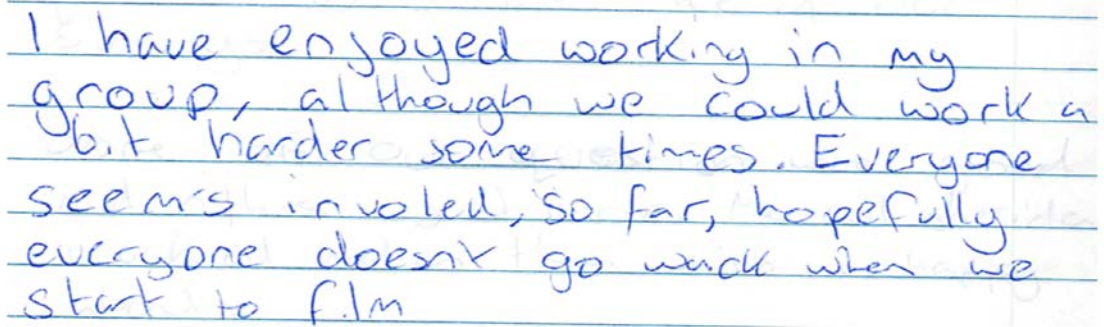 I have enjoyed working in my
group, although we could work a
bit harder some times. Everyone
seems involed, so far, hopefully
everyone doesn't go wack when we
start to film